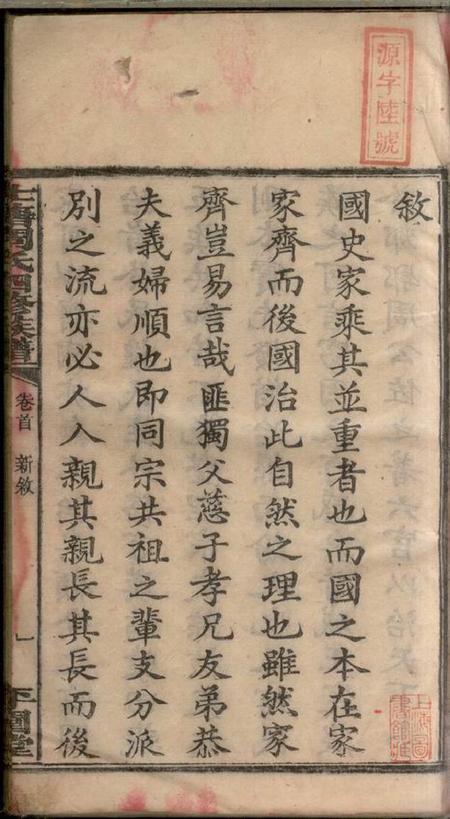 源字陸號
敘
國史家乘其並重者也而國之本在家
家齊而後國治此自然之理也雖然家
齊豈易言哉匪獨父慈子孝兄友弟恭
夫義婦順也即同宗共祖之輩支分派
別之流亦必人人親其親長其長而後
周氏四修族譜
卷首 新敘
一